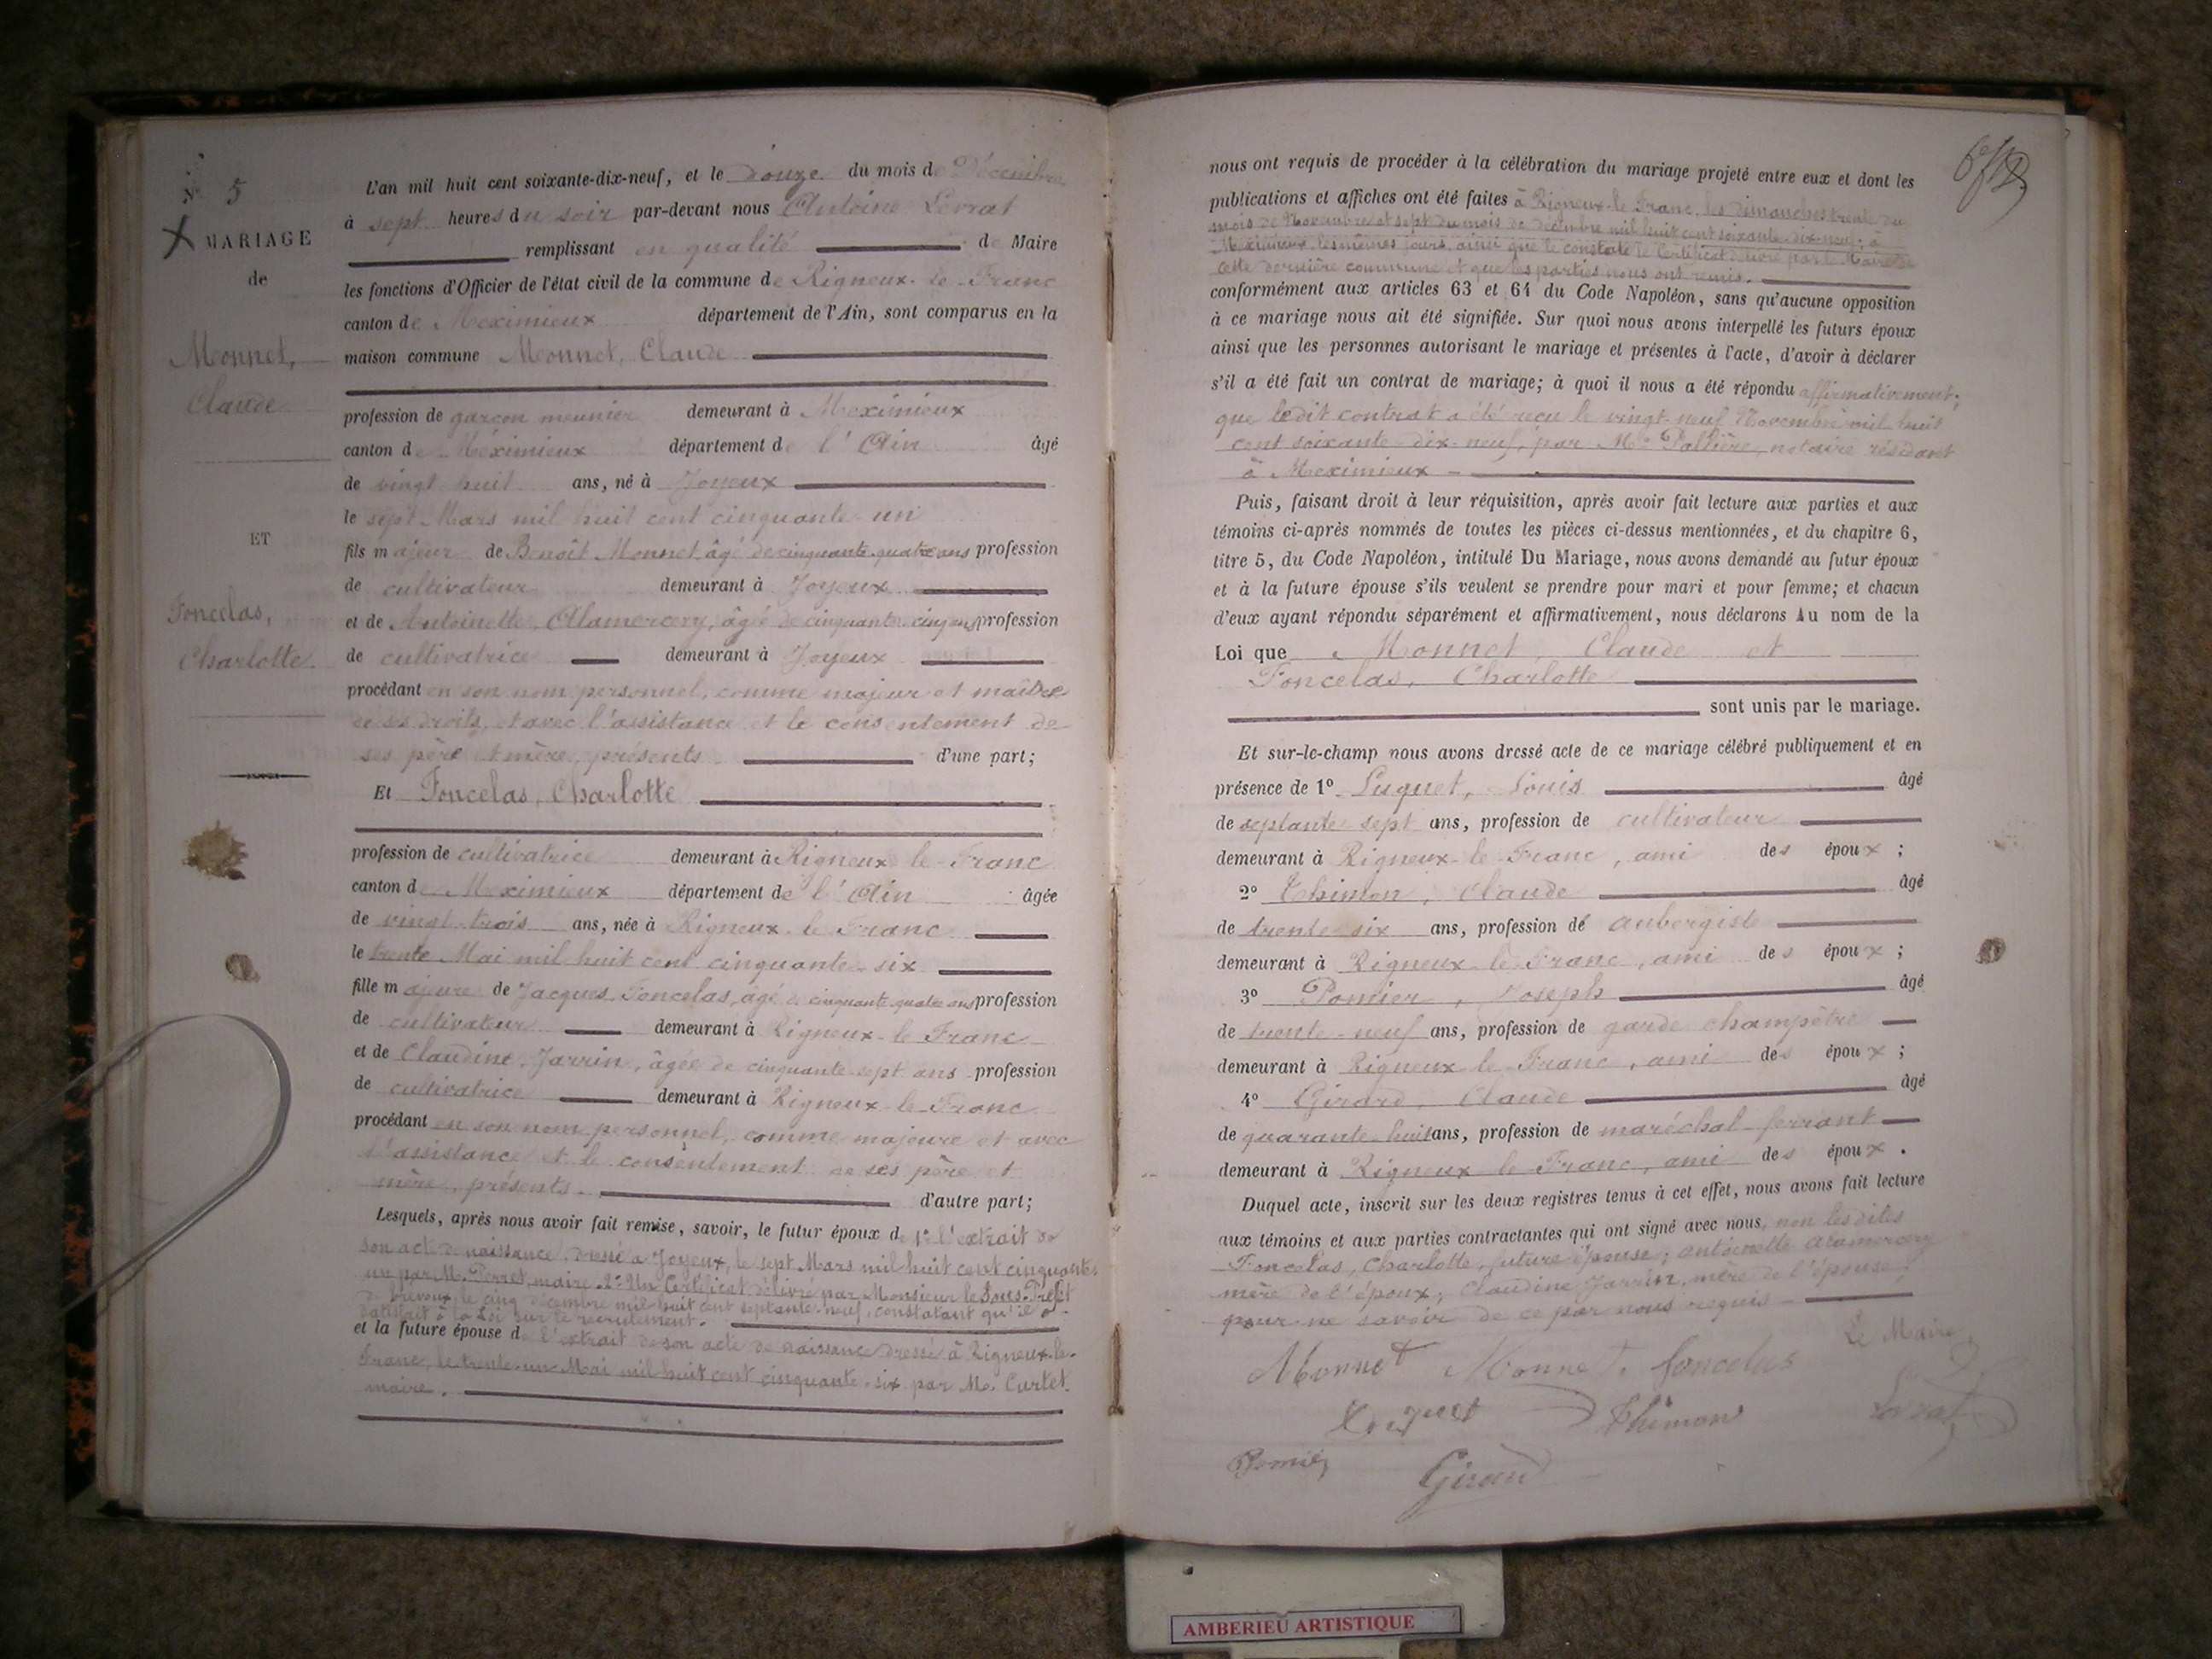 N° 5
MARIAGE
de
Monnet,
Claude
ET
Foncelas,
Charlotte
L'an mil huit cent soixante-dix-neuf, et le douze du mois de Décembre
à sept heures du soir par-devant nous Antoine Lorrat
remplissant en qualité de Maire
les fonctions d'Officier de l'état civil de la commune de Rigneux-le-Franc
canton de Meximieux département de l'Ain, sont comparus en la
maison commune Monnet, Claude
profession de garçon meunier demeurant à Meximieux
canton de Méximieux département de l'Ain âgé
de vingt huit ans, né à Joyeux
le sept Mars mil huit cent cinquante-un
fils majeur de Benoît Monnet âgé de cinquante-quatre ans profession
de cultivateur demeurant à Joyeux
et de Antoinette Alamercery, âgé de cinquante cinq ans profession
de cultivatrice demeurant à Joyeux
procédant en son nom personnel, comme majeur et maître
de ses droits, et avec l'assistance et le consentement de
ses père et mère, présents d'une part;
Et Foncelas, Charlotte
profession de cultivatrice demeurant à Rigneux le Franc
canton de Meximieux département de l'Ain âgée
de vingt-trois ans, née à Rigneux le Franc
le trente Mai mil huit cent cinquante-six
fille majeure de Jacques Foncelas, âgé de cinquante quatre ans profession
de cultivateur demeurant à Rigneux-le Franc
et de Claudine Jarrin, âgée de cinquante-sept ans profession
de cultivatrice demeurant à Rigneux-le Franc
procédant en son nom personnel, comme majeure et avec
l'assistance et le consentement de ses père et
mère, présents. d'autre part;
Lesquels, après nous avoir fait remise, savoir, le futur époux de 1° l'extrait de
son acte de naissance dressé à Joyeux, le sept Mars mil huit cent cinquante
un par M. Perret, maire. 2° Un Certificat délivré par Monsieur le Sous-Préfet
de Trévoux, le cinq décembre mil huit cent septante-neuf, constatant qu'il a
satisfait à la Loi sur le recrutement.
et la future épouse de l'extrait de son acte de naissance dressé à Rigneux-le-
Franc, le trente-un Mai mil huit cent cinquante-six par M. Curtet.
maire.
nous ont requis de procéder à la célébration du mariage projeté entre eux et dont les
publications et affiches ont été faites à Rigneux-le Franc, les dimanches trente du
mois de Novembre et sept du mois de décembre mil huit cent soixante-dix-neuf; à
Meximieux les mêmes jours, ainsi que le constate le Certificat délivré par le Maire de
cette dernière commune et que les parties nous ont remis.
conformément aux articles 63 et 64 du Code Napoléon, sans qu'aucune opposition
à ce mariage nous ait été signifiée. Sur quoi nous avons interpellé les futurs époux
ainsi que les personnes autorisant le mariage et présentes à l'acte, d'avoir à déclarer
s'il a été fait un contrat de mariage; à quoi il nous a été répondu affirmativement;
que ledit contrat a été reçu le vingt neuf Novembre mil huit
cent soixante-dix-neuf, par Me notaire résidant
à Meximieux
Puis, faisant droit à leur réquisition, après avoir fait lecture aux parties et aux
témoins ci-après nommés de toutes les pièces ci-dessus mentionnées, et du chapitre 6,
titre 5, du Code Napoléon, intitulé Du Mariage, nous avons demandé au futur époux
et à la future épouse s'ils veulent se prendre pour mari et pour femme; et chacun
d'eux ayant répondu séparément et affirmativement, nous déclarons Au nom de la
Loi que Monnet, Claude et
Foncelas, Charlotte
sont unis par le mariage.
Et sur-le-champ nous avons dressé acte de ce mariage célébré publiquement et en
présence de 1° Luquet, Louis âgé
de septante sept ans, profession de cultivateur
demeurant à Rigneux-le Franc, ami des époux;
2° Thimon, Claude âgé
de trente six ans, profession de aubergiste
demeurant à Rigneux le Franc, ami des époux;
3° Pomier, Joseph âgé
de trente-neuf ans, profession de garde champêtre
demeurant à Rigneux le Franc, ami des époux;
4° Girard, Claude âgé
de quarante huit ans, profession de maréchal ferrant
demeurant à Rigneux le Franc, ami des époux.
Duquel acte, inscrit sur les deux registres tenus à cet effet, nous avons fait lecture
aux témoins et aux parties contractantes qui ont signé avec nous, non les dites
Foncelas, Charlotte, future épouse; Antoinette Alamercery
mère de l'époux, Claudine Jarrin, mère de l'épouse,
pour ne savoir de ce par nous requis
Le Maire,
Monnet Monnet foncelas
Luquet Thimon Lorrat
Pomier Girard
AMBERIEU ARTISTIQUE